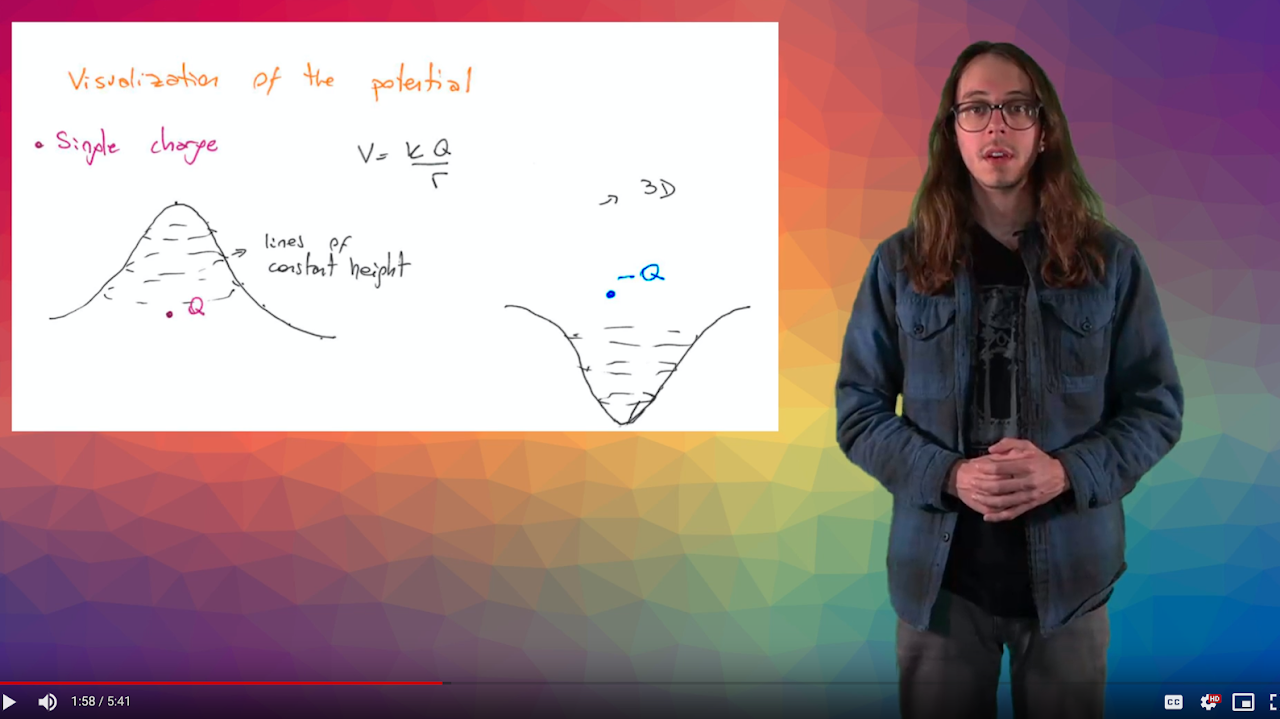 Visualization of the potential
• Single charge
V = kQ/r
→ 3D
lines of
→ constant height
-Q
Q
1:58 / 5:41
CC
HD